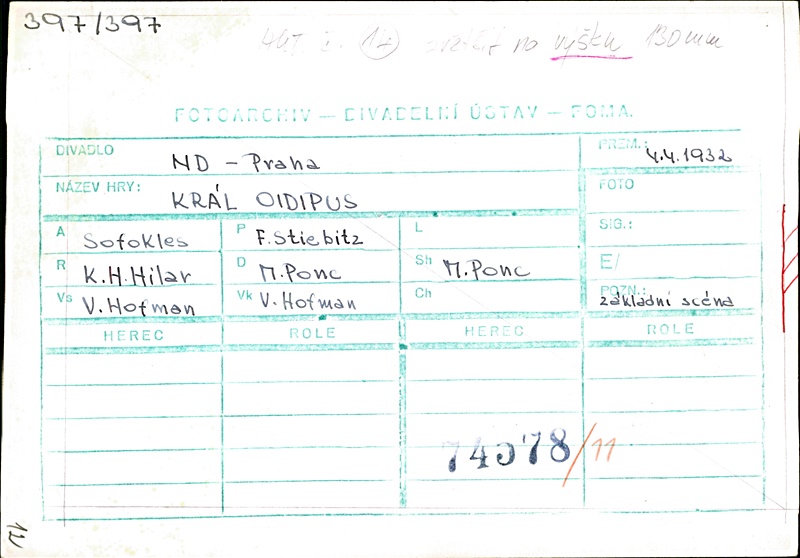 397/397
12 na výšku 130mm
FOTOARCHIV — DIVADELNÍ ÚSTAV — FOMA.
DIVADLO ND – Praha PREM.: 4.4.1932
NÁZEV HRY: KRÁL OIDIPUS FOTO
A Sofokles P F. Stiebitz L SIG.:
R K.H.Hilar D M.Ponc Sh M.Ponc E/
Vs V. Hofman Vk V. Hofman Ch POZN.: základní scéna
HEREC ROLE HEREC ROLE
74978/11
12